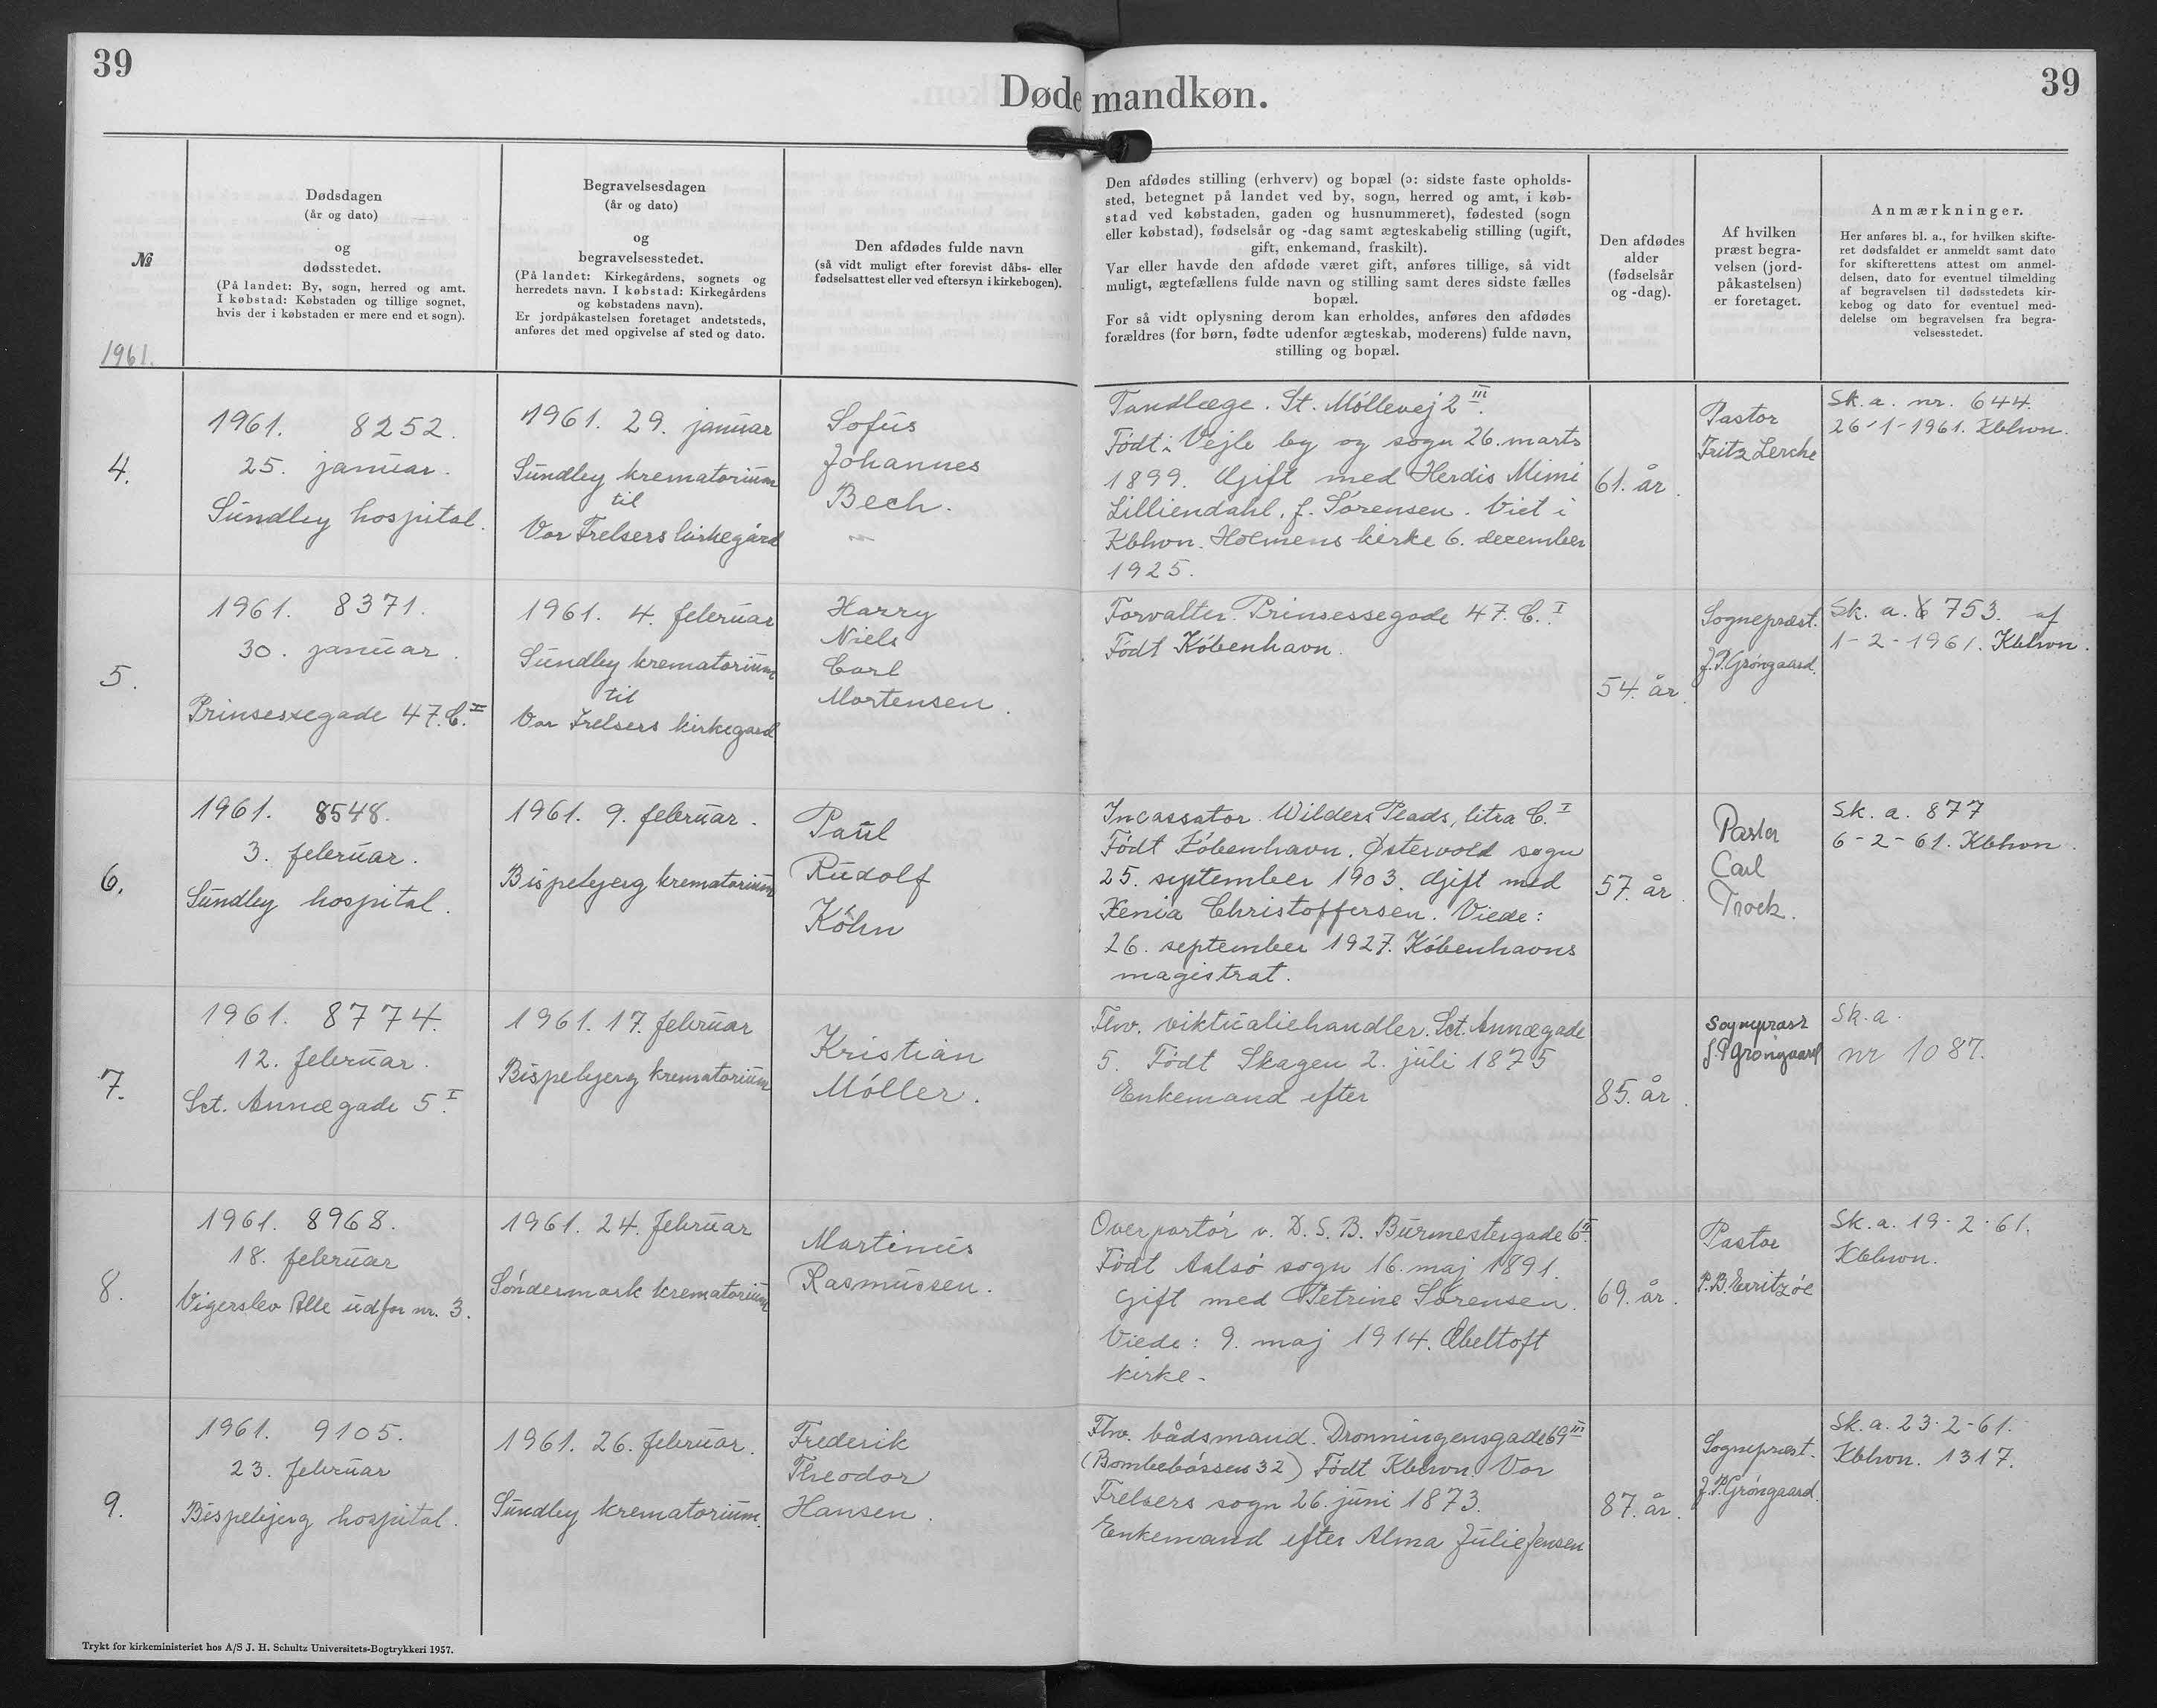 39
39
Døde mandkøn.
№
Dødsdagen
(år og dato)
og
dødsstedet.
(På landet: By, sogn, herred og amt.
I købstad: Købstaden og tillige sognet,
hvis der i købstaden er mere end et sogn).
Begravelsesdagen
(år og dato)
og
begravelsesstedet.
(På landet: Kirkegårdens, sognets og
herredets navn. I købstad: Kirkegårdens
og købstadens navn).
Er jordpåkastelsen foretaget andetsteds,
anføres det med opgivelse af sted og dato.
Den afdødes fulde navn
(så vidt muligt efter forevist dåbs- eller
fødselsattest eller ved eftersyn i kirkebogen).
Den afdødes stilling (erhverv) og bopæl (ɔ: sidste faste opholds-
sted, betegnet på landet ved by, sogn, herred og amt, i køb-
stad ved købstaden, gaden og husnummeret), fødested (sogn
eller købstad), fødselsår og -dag samt ægteskabelig stilling (ugift,
gift, enkemand, fraskilt).
Var eller havde den afdøde været gift, anføres tillige, så vidt
muligt, ægtefællens fulde navn og stilling samt deres sidste fælles
bopæl.
For så vidt oplysning derom kan erholdes, anføres den afdødes
forældres (for børn, fødte udenfor ægteskab, moderens) fulde navn,
stilling og bopæl.
Den afdødes
alder
(fødselsår
og -dag).
Af hvilken
præst begra-
velsen (jord-
påkastelsen)
er foretaget.
Anmærkninger.
Her anføres bl. a., for hvilken skifte-
ret dødsfaldet er anmeldt samt dato
for skifterettens attest om anmel-
delsen, dato for eventuel tilmelding
af begravelsen til dødsstedets kir-
kebog og dato for eventuel med-
delelse om begravelsen fra begra-
velsesstedet.
1961.
4.
1961. 8252.
25. januar.
Sundby hospital.
1961. 29. januar
Sundby krematorium
til
Vor Frelsers kirkegård
Sofus
Johannes
Bech.
Tandlæge. St. Möllevej 2 III.
Födt: Vejle by og sogn 26. marts
1899. Gift med Herdis Mimi
Lilliendahl, f. Sörensen. Viet i
Kbhvn. Holmens kirke 6. december
1925.
61. år.
Pastor
Fritz Lerche
Sk. a. nr. 644.
26-1-1961. Kbhvn.
5.
1961. 8371.
30. januar.
Prinsessegade 47. C. II
1961. 4. februar
Sundby krematorium
til
Vor Frelsers kirkegård
Harry
Niels
Carl
Mortensen.
Forvalter. Prinsessegade 47. C. I
Födt Köbenhavn.
54. år.
Sognepræst.
J.P. Gröngaard.
Sk. a. 753. af
1-2-1961. Kbhvn.
6.
1961. 8548.
3. februar.
Sundby hospital.
1961. 9. februar.
Bispebjerg krematorium
Paul
Rudolf
Köhn
Incassator. Wilders Plads, litra C. I
Födt Köbenhavn. Østervold sogn
25. september 1903. Gift med
Xenia Christoffersen. Viede:
26. september 1927. Köbenhavns
magistrat.
57. år.
Pastor
Carl
Trock.
Sk. a. 877
6-2-61. Kbhvn.
7.
1961. 8774.
12. februar.
Sct. Annægade 5. I
1961. 17. februar
Bispebjerg krematorium
Kristian
Möller.
Fhv. viktualiehandler. Sct. Annægade
5. Födt Skagen 2. juli 1875
Enkemand efter
85. år.
Sognepræst
J.P Gröngaard
Sk. a.
nr 1087.
8.
1961. 8968.
18. februar
Vigerslev Alle udfor nr. 3.
1961. 24. februar
Söndermark krematorium
Martinus
Rasmussen.
Overportör v. D. S. B. Burmestergade 6 II.
Födt Aalsö sogn 16. maj 1891.
Gift med Petrine Sörensen.
Viede: 9. maj 1914. Ebeltoft
kirke.
69. år.
Pastor
P.B. Geritzöe
Sk. a. 19-2-61.
Kbhvn.
9.
1961. 9105.
23. februar
Bispebjerg hospital.
1961. 26. februar.
Sundby krematorium.
Frederik
Theodor
Hansen.
Fhv. bådsmand. Dronningensgade 69 III
(Bombebössen 32) Födt Kbhvn. Vor
Frelsers sogn 26. juni 1873.
Enkemand efter Alma Julie Jensen
87. år.
Sognepræst.
J.P. Gröngaard.
Sk. a. 23-2-61.
Kbhvn. 1317.
Trykt for kirkeministeriet hos A/S J. H. Schultz Universitets-Bogtrykkeri 1957.